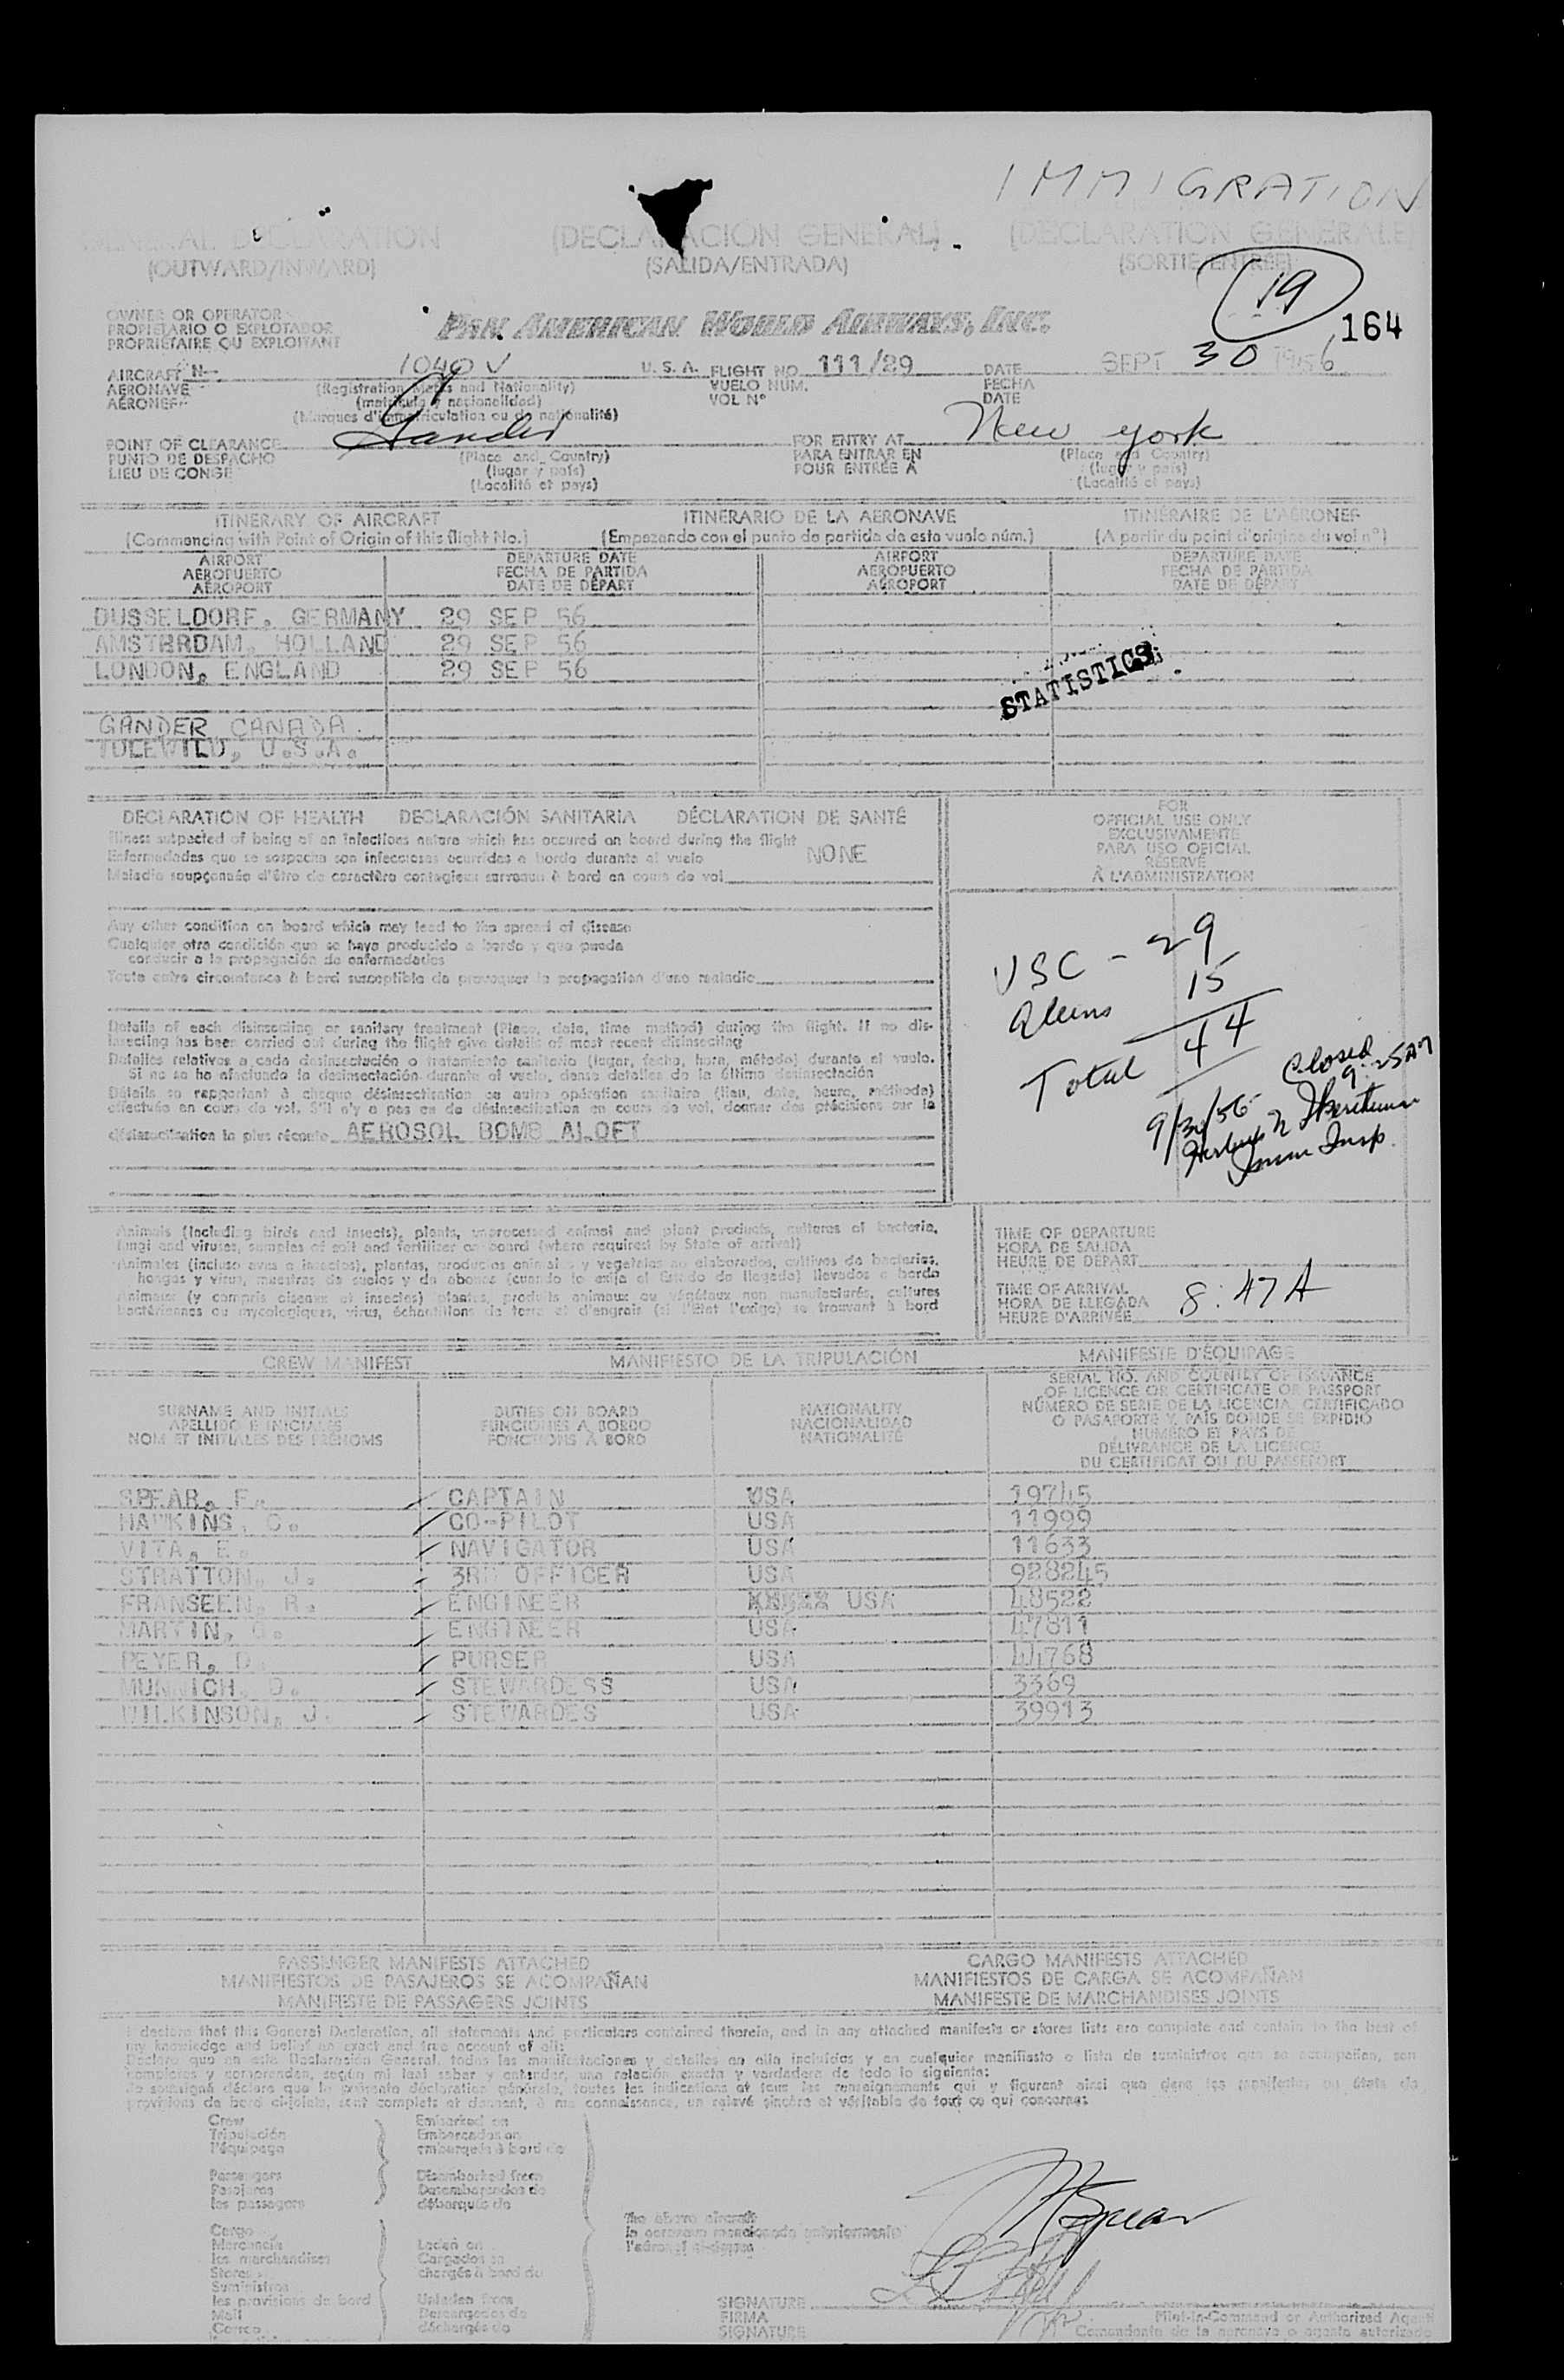 IMMIGRATION
GENERAL DECLARATION (DECLARACIÓN GENERAL) (DECLARATION GENERALE)
(OUTWARD/INWARD) (SALIDA/ENTRADA) (SORTIE/ENTRÉE)
19
164
OWNER OR OPERATOR
PROPIETARIO O EXPLOTADOR
PROPRIÉTAIRE OU EXPLOITANT
PAN AMERICAN WORLD AIRWAYS, INC.
AIRCRAFT N- 1040 V U. S. A. FLIGHT NO. 111/29 DATE SEPT 30 1956
AERONAVE (Registration Marks and Nationality) VUELO NÚM. FECHA
AÉRONEF (matrícula y nacionalidad) VOL Nº DATE
(Marques d'immatriculation ou de nationalité)
POINT OF CLEARANCE Gander FOR ENTRY AT New York
PUNTO DE DESPACHO (Place and Country) PARA ENTRAR EN (Place and Country)
LIEU DE CONGE (lugar y país) POUR ENTRÉE A (lugar y país)
(Localité et pays) (Localité et pays)
ITINERARY OF AIRCRAFT ITINERARIO DE LA AERONAVE ITINÉRAIRE DE L'AÉRONEF
(Commencing with Point of Origin of this flight No.) (Empezando con el punto de partida de este vuelo núm.) (A partir du point d'origine du vol nº)
AIRPORT DEPARTURE DATE AIRPORT DEPARTURE DATE
AEROPUERTO FECHA DE PARTIDA AEROPUERTO FECHA DE PARTIDA
AÉROPORT DATE DE DÉPART AÉROPORT DATE DE DÉPART
DUSSELDORF, GERMANY 29 SEP 56
AMSTERDAM, HOLLAND 29 SEP 56
LONDON, ENGLAND 29 SEP 56
STATISTICS
GANDER CANADA
IDLEWILD, U.S.A.
DECLARATION OF HEALTH DECLARACIÓN SANITARIA DÉCLARATION DE SANTÉ
Illness suspected of being of an infectious nature which has occured on board during the flight
Enfermedades que se sospecha son infecciosas ocurridas a bordo durante el vuelo NONE
Maladie soupçonnée d'être de caractère contagieux survenue à bord en cours de vol
Any other condition on board which may lead to the spread of disease
Cualquier otra condición que se haya producido a bordo y que pueda
conducir a la propagación de enfermedades
Toute autre circonstance à bord susceptible de provoquer la propagation d'une maladie
Details of each disinsecting or sanitary treatment (Place, date, time method) during the flight. If no dis-
insecting has been carried out during the flight give details of most recent disinsecting
Detalles relativos a cada desinsectación o tratamiento sanitario (lugar, fecha, hora, método) durante el vuelo.
Si no se ha efectuado la desinsectación durante el vuelo, dense detalles de la última desinsectación
Détails se rapportant à chaque désinsectisation ou autre opération sanitaire (lieu, date, heure, méthode)
effectuée en cours de vol. S'il n'y a pas eu de désinsectisation en cours de vol, donner des précisions sur la
désinsectisation la plus récente AEROSOL BOMB ALOFT
FOR
OFFICIAL USE ONLY
EXCLUSIVAMENTE
PARA USO OFICIAL
RÉSERVÉ
À L'ADMINISTRATION
USC - 29
Aliens 15
Total 44
Closed
9:25 AM
9/30/56
Imm Insp.
Animals (including birds and insects), plants, unprocessed animal and plant products, cultures of bacteria,
fungi and viruses, samples of soil and fertilizer on board (where required by State of arrival)
Animales (incluso aves e insectos), plantas, productos animales y vegetales no elaborados, cultivos de bacterias,
hongos y virus, muestras de suelos y de abonos (cuando lo exija el Estado de llegada) llevados a bordo
Animaux (y compris oiseaux et insectes) plantes, produits animaux ou végétaux non manufacturés, cultures
bactériennes ou mycologiques, virus, échantillons de terre et d'engrais (si l'Etat l'exige) se trouvant à bord
TIME OF DEPARTURE
HORA DE SALIDA
HEURE DE DÉPART
TIME OF ARRIVAL
HORA DE LLEGADA 8:47A
HEURE D'ARRIVÉE
CREW MANIFEST MANIFIESTO DE LA TRIPULACIÓN MANIFESTE D'ÉQUIPAGE
SURNAME AND INITIALS
APELLIDO E INICIALES
NOM ET INITIALES DES PRÉNOMS
DUTIES ON BOARD
FUNCIONES A BORDO
FONCTIONS À BORD
NATIONALITY
NACIONALIDAD
NATIONALITÉ
SERIAL NO. AND COUNTRY OF ISSUANCE
OF LICENCE OR CERTIFICATE OR PASSPORT
NÚMERO DE SERIE DE LA LICENCIA, CERTIFICADO
O PASAPORTE Y PAÍS DONDE SE EXPIDIÓ
NUMÉRO ET PAYS DE
DÉLIVRANCE DE LA LICENCE
DU CERTIFICAT OU DU PASSEPORT
SPEAR, F. CAPTAIN USA 19745
HAWKINS, C. CO-PILOT USA 11999
VITA, E. NAVIGATOR USA 11633
STRATTON, J. 3RD OFFICER USA 928245
FRANSEEN, R. ENGINEER USA 48522
MARTIN, ENGINEER USA 47811
PEYER, D. PURSER USA 44768
MUNNICH, D. STEWARDESS USA 3369
WILKINSON, J. STEWARDES USA 39913
PASSENGER MANIFESTS ATTACHED CARGO MANIFESTS ATTACHED
MANIFIESTOS DE PASAJEROS SE ACOMPAÑAN MANIFIESTOS DE CARGA SE ACOMPAÑAN
MANIFESTE DE PASSAGERS JOINTS MANIFESTE DE MARCHANDISES JOINTS
I declare that this General Declaration, all statements and particulars contained therein, and in any attached manifests or stores lists are complete and contain to the best of
my knowledge and belief an exact and true account of all:
Declaro que en esta Declaración General, todas las manifestaciones y detalles en ella incluídos y en cualquier manifiesto o lista de suministros que se acompañan, son
completos y comprenden, según mi leal saber y entender, una relación exacta y verdadera de todo lo siguiente:
Je soussigné déclare que la présente déclaration générale, toutes les indications et tous les renseignements qui y figurent ainsi que dans les manifestes ou états de
provisions de bord ci-joints, sont complets et donnent, à ma connaissance, un relevé sincère et véritable de tout ce qui concerne:
Crew Embarked on
Tripulación Embarcados en
l'équipage embarqués à bord de
Passengers Disembarked from
Pasajeros Desembarcados de
les passagers débarqués de
Cargo
Mercancía Laden on
les marchandises Cargados en
Stores chargés à bord de
Suministros
les provisions de bord Unladen from
Mail Descargados de
Correo déchargés de
The above aircraft
la aeronave mencionada anteriormente
l'aéronef ci-dessus
Spear
SIGNATURE
FIRMA Pilot-in-Command or Authorized Agent
SIGNATURE Comandante de la aeronave o agente autorizado